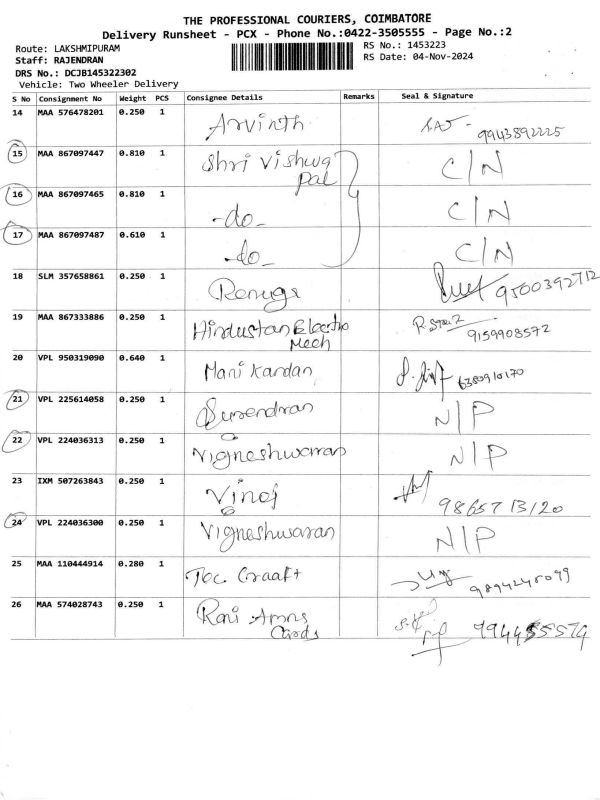 THE PROFESSIONAL COURIERS, COIMBATORE
Delivery Runsheet - PCX - Phone No.:0422-3505555 - Page No.:2
Route: LAKSHMIPURAM RS No.: 1453223
Staff: RAJENDRAN RS Date: 04-Nov-2024
DRS No.: DCJB145322302
Vehicle: Two Wheeler Delivery
S No Consignment No Weight PCS Consignee Details Remarks Seal & Signature
14 MAA 576478201 0.250 1 Arvinth 9943892225
15 MAA 867097447 0.810 1 Shri Vishwa C/N
Pal
16 MAA 867097465 0.810 1 -do- C/N
17 MAA 867097487 0.610 1 -do- C/N
18 SLM 357658861 0.250 1 Renuga 9500392712
19 MAA 867333886 0.250 1 Hindustan Electro
Mech 9159908572
20 VPL 950319090 0.640 1 Mani Kandan 6380910170
21 VPL 225614058 0.250 1 Surendran N/P
22 VPL 224036313 0.250 1 Vigneshwaran N/P
23 IXM 507263843 0.250 1 Vinoj 9865713120
24 VPL 224036300 0.250 1 Vigneshwaran N/P
25 MAA 110444914 0.280 1 Tec Craaft 9894245099
26 MAA 574028743 0.250 1 Rani Amns
Cards